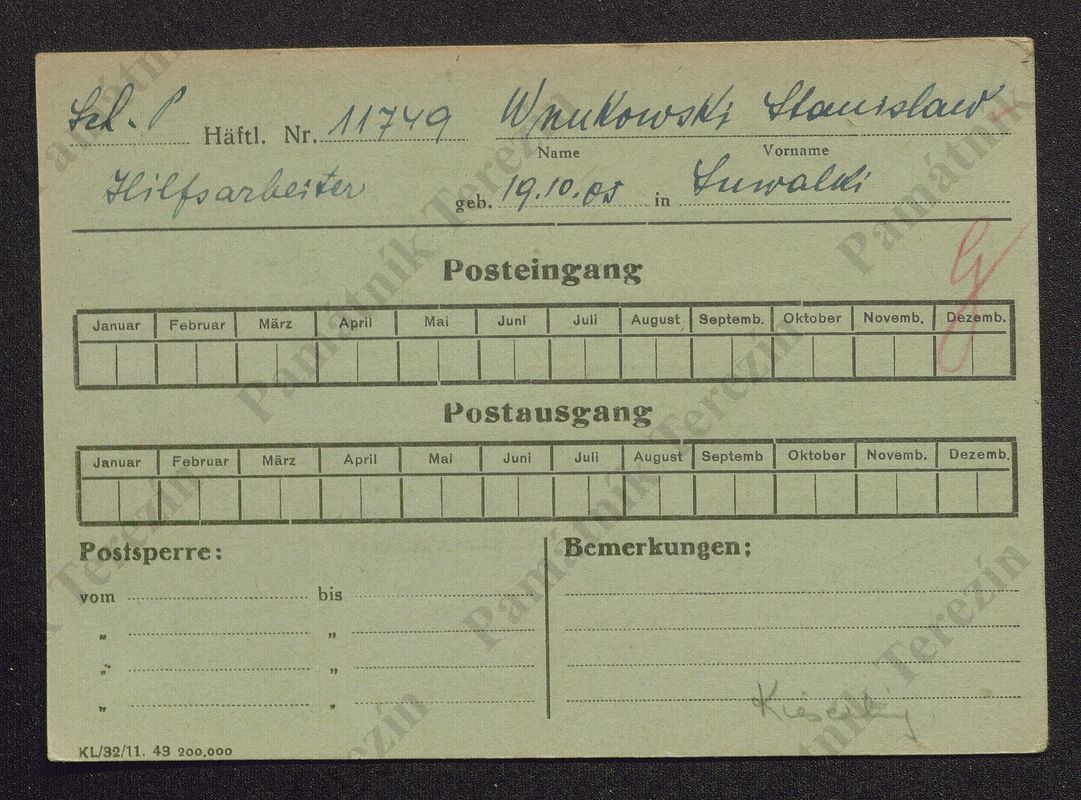 Sch. P Häftl. Nr. 11749 Wnukowski Stanislaw
Name Vorname
Hilfsarbeiter geb. 19.10.05 in Suwalki
Posteingang
Januar Februar März April Mai Juni Juli August Septemb. Oktober Novemb. Dezemb.
Postausgang
Januar Februar März April Mai Juni Juli August Septemb Oktober Novemb. Dezemb.
Postsperre: Bemerkungen:
vom bis
" "
" "
" "
KL/32/11. 43 200.000
Památník Terezín